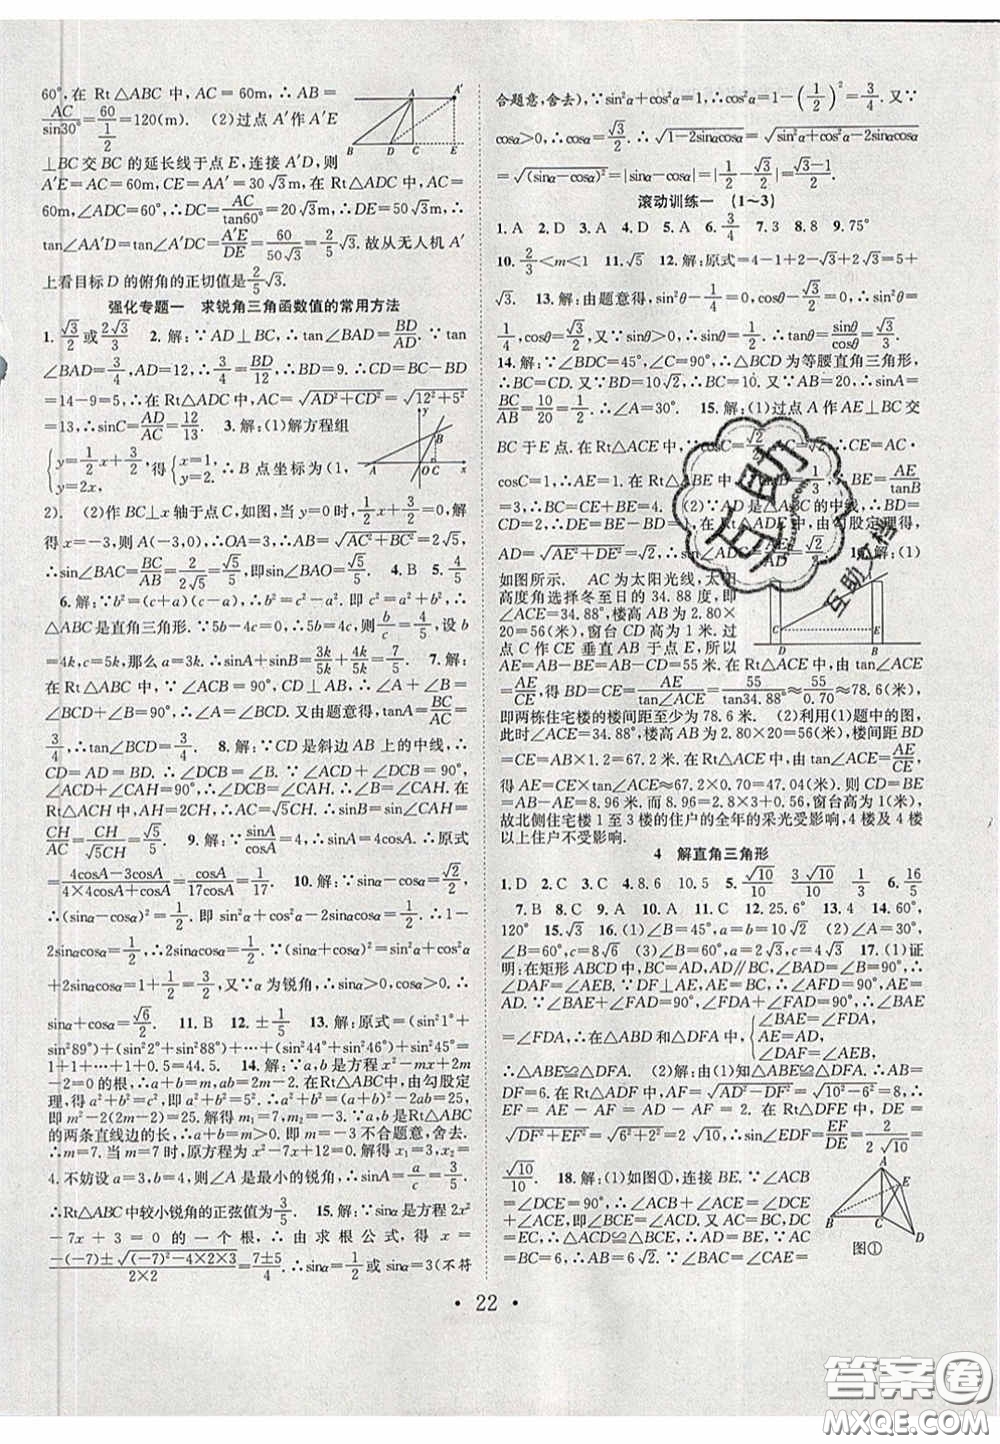 60°, 在 Rt△ABC 中, AC = 60m, ∴ AB =
AC/sin30° = 60/(1/2) = 120(m). (2)过点 A′作 A′E
⊥BC 交 BC 的延长线于点 E, 连接 A′D, 则
A′E=AC=60m, CE=AA′=30√3m, 在 Rt△ADC 中, AC=
60m, ∠ADC=60°, ∴DC=AC/tan60°=20√3. ∴DE=50√3. ∴
tan∠AA′D=tan∠A′DE=A′E/DE=60/(50√3)=(2/5)√3. 故从无人机 A′
上看目标 D 的俯角的正切值是(2/5)√3.
强化专题一 求锐角三角函数值的常用方法
1. √3/2 或 2√3/3 2. 解: ∵AD⊥BC, ∴tan∠BAD=BD/AD. ∵tan
∠BAD=3/4, AD=12, ∴3/4=BD/12, ∴BD=9. ∴CD=BC-BD
=14-9=5, ∴在 Rt△ADC 中, AC=√(AD²+CD²)=√(12²+5²)
=13, ∴sinC=AD/AC=12/13. 3. 解: (1)解方程组
{y=(1/2)x+3/2, y=2x, 得{x=1, y=2. ∴B 点坐标为(1,
2). (2)作 BC⊥x 轴于点 C, 如图, 当 y=0 时, (1/2)x+3/2=0, 解
得 x=-3, 则 A(-3,0), ∴OA=3, ∴AB=√(AC²+BC²)=2√5,
∴sin∠BAC=BC/AB=2/(2√5)=√5/5, 即sin∠BAO=√5/5. 4. B 5. 4/5
6. 解: ∵b²=(c+a)(c-a), ∴b²=c²-a². 即 c²=a²+b², ∴
△ABC 是直角三角形. ∵5b-4c=0, ∴5b=4c, 则 b/c=4/5, 设 b
=4k, c=5k, 那么 a=3k. ∴sinA+sinB=3k/5k+4k/5k=7/5. 7. 解:
在 Rt△ABC 中, ∵∠ACB = 90°, CD⊥AB, ∴∠A + ∠B =
∠BCD+∠B=90°, ∴∠A=∠BCD. 又由题意得, tanA=BC/AC=
3/4, ∴tan∠BCD=3/4. 8. 解: ∵CD 是斜边 AB 上的中线, ∴
CD = AD = BD. ∴∠BCD = ∠B. ∵∠ACD + ∠BCD = 90°,
∠ACD+∠CAH=90°, ∴∠BCD=∠CAH. ∴∠B=∠CAH. 在
Rt△ACH 中, AH=2CH, ∴AC=√5CH. ∴sinB=sin∠CAH=
CH/AC=CH/(√5CH)=√5/5. 9. 解: ∵sinA/cosA=4, ∴sinA=4cosA. ∴原式
=(4cosA-3cosA)/(4×4cosA+cosA)=cosA/17cosA=1/17. 10. 解: ∵sinα-cosα=√2/2.
∴(sinα-cosα)²=1/2. 即 sin²α+cos²α-2sinαcosα=1/2. ∴1-
2sinαcosα=1/2. ∴2sinαcosα=1/2. ∵(sinα+cosα)²=sin²α+cos²α
+2sinαcosα, ∴(sinα+cosα)²=1+1/2=3/2. 又∵α为锐角, ∴sinα
+cosα=√6/2. 11. B 12. ±1/5 13. 解: 原式=(sin²1°+
sin²89°)+(sin²2°+sin²88°)+…+(sin²44°+sin²46°)+sin²45°=
1+1+…+1+0.5=44.5. 14. 解: ∵a,b 是方程 x²-mx+2m-
2=0 的根, ∴a+b=m, ab=2m-2. 在 Rt△ABC 中, 由勾股定
理, 得 a²+b²=c². 即 a²+b²=5². ∴a²+b²=(a+b)²-2ab=25,
即 m²-2(2m-2)=25. 解得 m₁=7, m₂=-3. ∵a,b 是 Rt△ABC
的两条直线边的长, ∴a+b=m>0. 即 m=-3 不合题意, 舍去.
∴m=7. 当 m=7 时, 原方程为 x²-7x+12=0. 解得 x₁=3, x₂=
4. 不妨设 a=3, b=4, 则∠A 是最小的锐角, ∴sinA=a/c=3/5.
∴Rt△ABC 中较小锐角的正弦值为3/5. 15. 解: ∵sinα是方程 2x²
-7x+3=0 的一个根, ∴由求根公式, 得 x=
(-(-7)±√((-7)²-4×2×3))/(2×2)=(7±5)/4. ∴sinα=1/2 或 sinα=3(不符
合题意, 舍去), ∵sin²α+cos²α=1, ∴cos²α=1-(1/2)²=3/4. 又∵
cosα>0, ∴cosα=√3/2. ∴√(1-2sinαcosα)=√(sin²α+cos²α-2sinαcosα)
=√((sinα-cosα)²)=|sinα-cosα|=|1/2-√3/2|=(√3-1)/2.
滚动训练一 (1~3)
1. A 2. A 3. B 4. D 5. A 6. 3/4 7. 3 8. 8 9. 75°
10. 2/3<m<1 11. √5 12. 解: 原式=4-1+2-√3+2√3-5=
√3. 13. 解: 由题意得, sin²θ-1/4=0, 且 cos²θ-3/4=0, ∴sin²θ=
1/4, cos²θ=3/4, 又∵sinθ>0, ∴sinθ=1/2, cosθ=√3/2. ∴tanθ=sinθ/cosθ=√3/3.
14. 解: ∵∠BDC=45°, ∠C=90°, ∴△BCD 为等腰直角三角形,
∴BC=CD. 又∵BD=10√2, ∴BC=10. 又∵AB=20, ∴sinA=
BC/AB=10/20=1/2, ∴∠A=30°. 15. 解: (1)过点 A 作 AE⊥BC 交
BC 于 E 点. 在 Rt△ACE 中, ∵cosC=√2/2, ∴CE=AC·
cosC=1, ∴AE=CE=1. 在 Rt△ABE 中, 1/3, ∴BE=AE/tanB
=3. ∴BC=BE+CE=4. (2)∵AD 是△ABC 的中线,
AD=√(AE²+DE²)=√2.
16. 解: (1)
如图所示. AC 为太阳光线, 太阳
高度角选择冬至日的 34.88 度, 即
∠ACE=34.88°, 楼高 AB 为 2.80
×20=56(米), 窗台 CD 高为 1 米. 过
点 C 作 CE 垂直 AB 于点 E, 所以
AE=AB-BE=AB-CD=55 米. 在 Rt△ACE 中, 由 tan∠ACE
=AE/CE, 得 BD=CE=AE/tan∠ACE=55/tan34.88°≈55/0.70≈78.6(米),
即两栋住宅楼的楼间距至少为 78.6 米. (2)利用(1)题中的图,
此时∠ACE=34.88°, 楼高 AB 为 2.80×20=56(米), 楼间距 BD
=CE=AB×1.2=67.2 米. 在 Rt△ACE 中, 由 tan∠ACE=AE/CE,
得 AE=CE×tan∠ACE≈67.2×0.70=47.04(米), 则 CD=BE=
AB-AE=8.96 米. 而 8.96=2.8×3+0.56, 窗台高为 0.56 米.
故北侧住宅楼 1 至 3 楼的住户的全年的采光受影响, 4 楼及 4 楼
以上住户不受影响.
4 解直角三角形
1. D 2. C 3. C 4. 8.6 10.5 5. √10/10 3√10/10 1/3 6. 16/5
7. B 8. C 9. C 10. A 11. C 12. 25.6° 13. 2 14. 60°,
120° 15. √3 16. (1)∠B=45°, a=b=10√2 (2)∠A=30°,
∠B=60°, c=8√6 (3)∠B=60°, a=2√3, c=4√3 17. (1)证
明: 在矩形 ABCD 中, BC=AD, AD∥BC, ∠B=90°, ∴
∠DAF=∠AEB. ∵DF⊥AE, AE=BC, ∴∠AFD=90°, AE=
AD. ∵∠BAE+∠DAF=∠FDA+∠DAF=90°, ∴∠BAE
=∠FDA, ∴在△ABD 和△DFA 中, {∠BAE=∠FDA, AE=AD, ∠DAF=∠AEB,
∴△ABE≌△DFA. (2)解: 由(1)知△ABE≌△DFA. ∴AB
=DF=6. 在 Rt△ADF 中, AF=√(AD²-DF²)=√(10²-6²)=8, ∴
EF=AE-AF=AD-AF=2. 在 Rt△DFE 中, DE=
√(DF²+EF²)=√(6²+2²)=2√10, ∴sin∠EDF=EF/DE=2/(2√10)=
√10/10. 18. 解: (1)如图①, 连接 BE. ∵∠ACB
=∠DCE=90°, ∴∠ACB+∠ACE=∠DCE
+∠ACE, 即∠BCE=∠ACD. 又∵AC=BC,
DC=EC, ∴△ACD≌△BCE. ∵AC=BC
=6, ∴∠BAC=∠ABC=60°, ∴∠ACB=60°.
A A′ B D C E
A B O C x y
A C D E B
A E B C D 图①
· 22 ·
互助
互助文档
答案圈
MXQE.COM